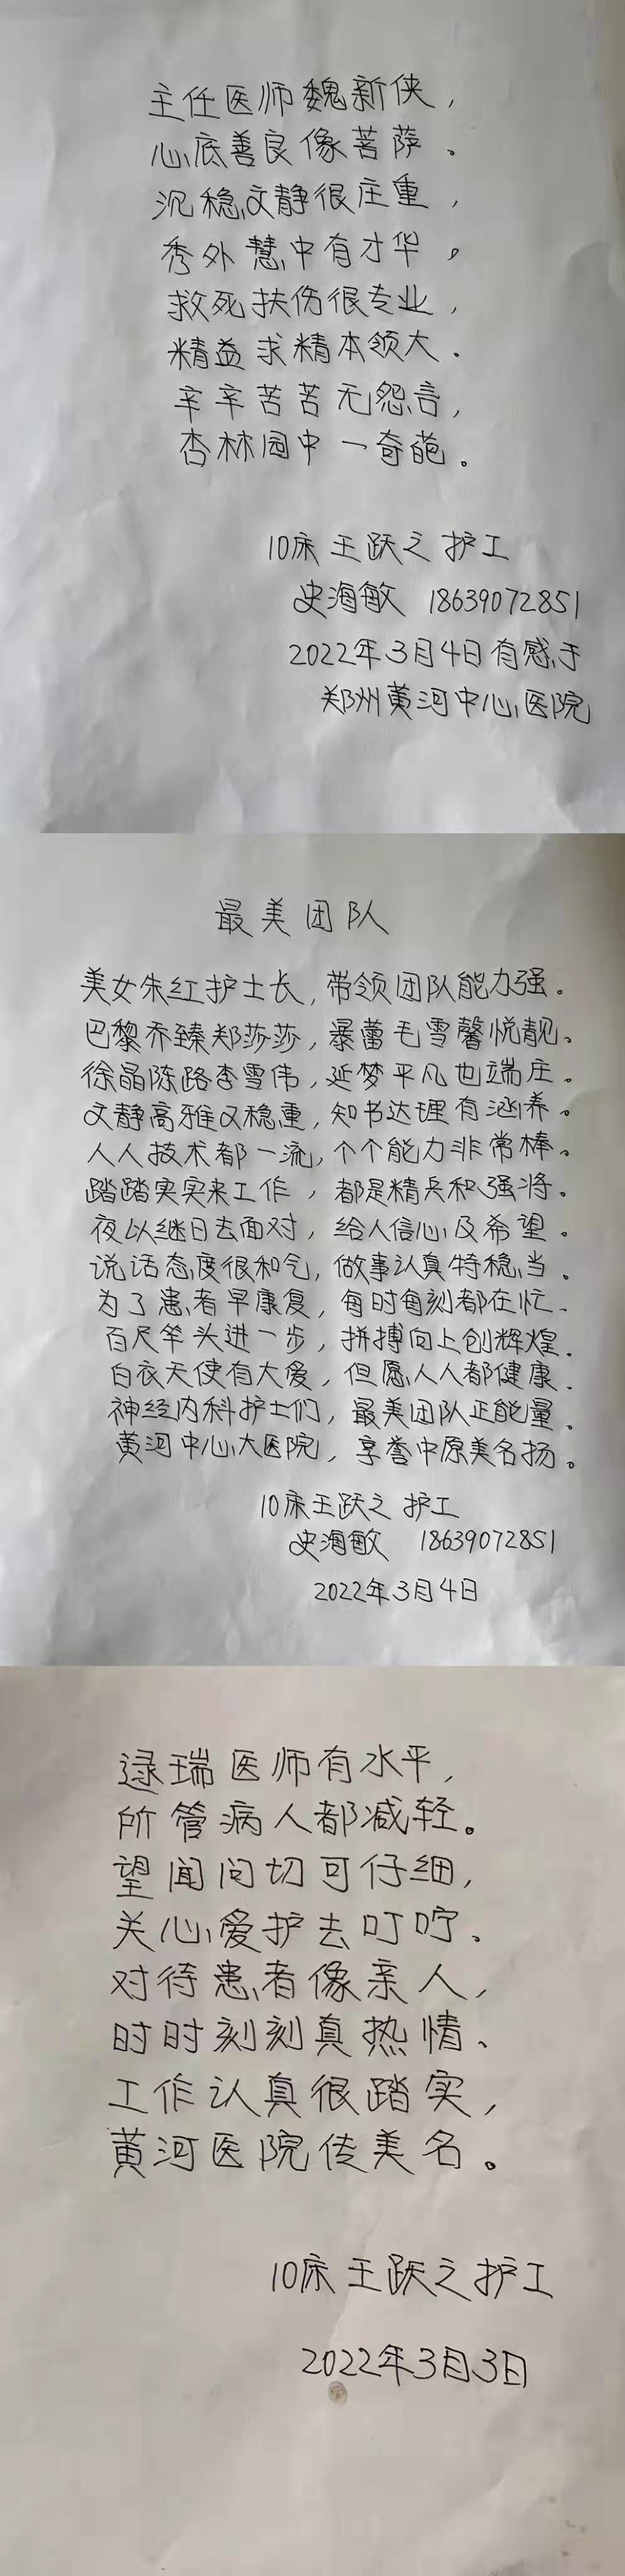 主任医师魏新侠，
心底善良像菩萨。
沉稳文静很庄重，
秀外慧中有才华。
救死扶伤很专业，
精益求精本领大。
辛辛苦苦无怨言，
杏林园中一奇葩。
10床王跃之护工
史海敏 18639072851
2022年3月4日有感于
郑州黄河中心医院
最美团队
美女朱红护士长，带领团队能力强。
巴黎乔臻郑莎莎，暴蕾毛雪馨悦靓。
徐晶陈路李雪伟，延梦平凡也端庄。
文静高雅又稳重，知书达理有涵养。
人人技术都一流，个个能力非常棒。
踏踏实实来工作，都是精兵和强将。
夜以继日去面对，给人信心及希望。
说话态度很和气，做事认真特稳当。
为了患者早康复，每时每刻都在忙。
百尺竿头进一步，拼搏向上创辉煌。
白衣天使有大爱，但愿人人都健康。
神经内科护士们，最美团队正能量。
黄河中心大医院，享誉中原美名扬。
10床王跃之护工
史海敏 18639072851
2022年3月4日
逯瑞医师有水平，
所管病人都减轻。
望闻问切可仔细，
关心爱护去叮咛、
对待患者像亲人，
时时刻刻真热情、
工作认真很踏实，
黄河医院传美名。
10床王跃之护工
2022年3月3日